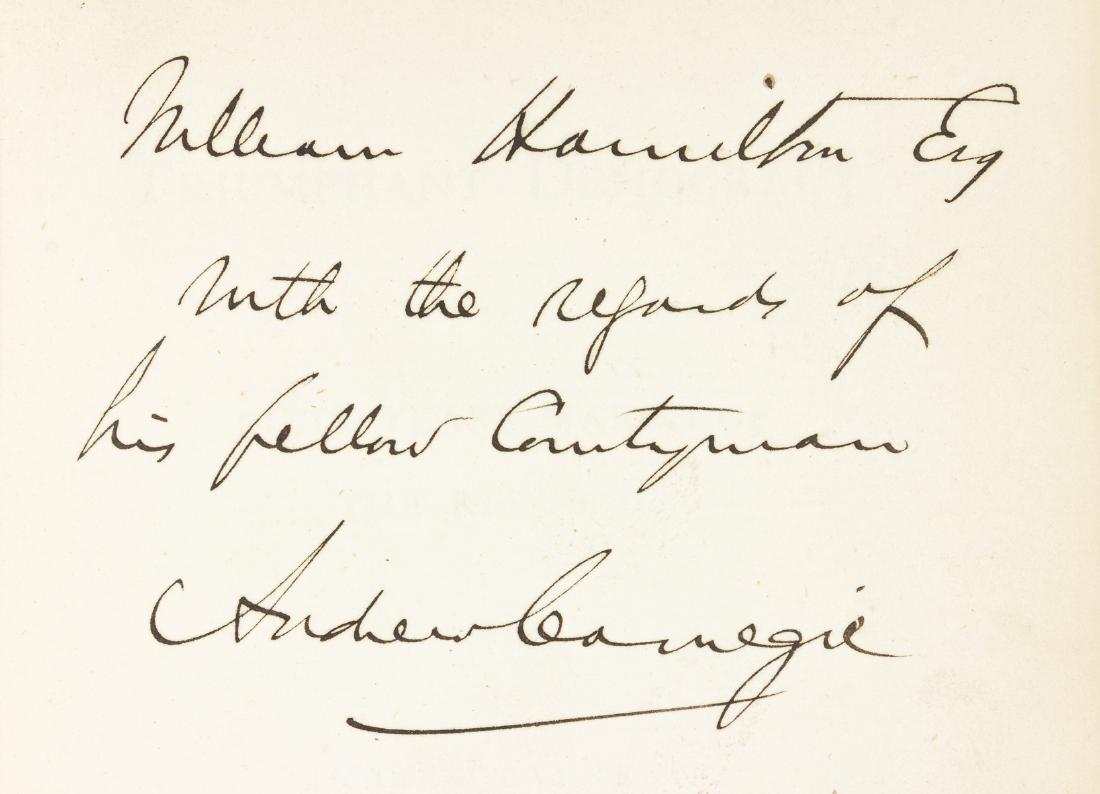 William Hamilton Esq
with the regards of
his fellow Countryman
Andrew Carnegie